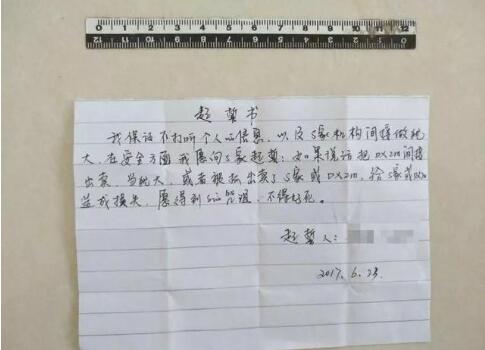 0 1 2 3 4 5 6 7 8 9 10 11 12
起誓书
我保证不打听个人心信息，以及S家机构间接做犹
大，在安全方面我愿向S家起誓：如果说话把DXZM间接
出卖，当犹大，或者被抓出卖了S家或DXZM，给S家或DXZM
造成损失，愿得到S的咒诅，不得好死。
起誓人：
2017.6.23